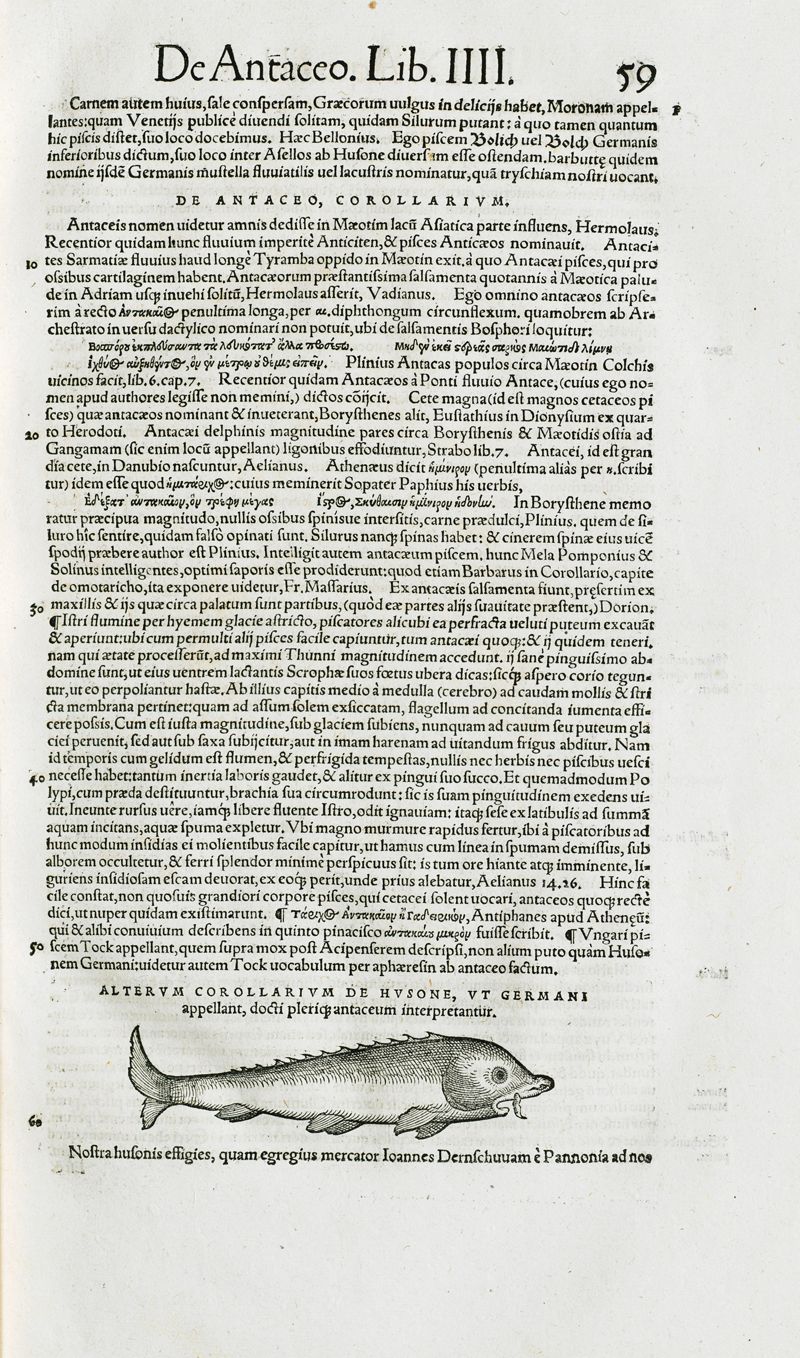 De Antaceo. Lib. IIII. 59
Carnem autem huius, ſale conſperſam, Græcorum uulgus in delicijs habet, Moronam appel-
lantes: quam Venetijs publicè diuendi ſolitam, quidam Silurum putant: à quo tamen quantum
hic piſcis diſtet, ſuo loco docebimus. Hæc Bellonius. Ego piſcem Bolich uel Bolch Germanis
inferioribus dictum, ſuo loco inter Aſellos ab Huſone diuerſum eſſe oſtendam. barbutte quidem
nomine ijſdẽ Germanis muſtella fluuiatilis uel lacuſtris nominatur, quã tryſchiam noſtri uocant.
DE ANTACEO, COROLLARIVM.
Antaceis nomen uidetur amnis dediſſe in Mæotim lacũ Aſiatica parte influens, Hermolaus.
Recentior quidam hunc fluuium imperitè Anticiten, & piſces Anticæos nominauit. Antaci-
10 tes Sarmatiæ fluuius haud longè Tyramba oppido in Mæotin exit. à quo Antacæi piſces, qui pro
oſsibus cartilaginem habent. Antacæorum præſtantiſsima ſalſamenta quotannis à Mæotica palu-
de in Adriam uſq; inuehi ſolitũ, Hermolaus aſſerit, Vadianus. Ego omnino antacæos ſcripſe-
rim à recto penultima longa, per αι. diphthongum circunflexum. quamobrem ab Ar-
cheſtrato in uerſu dactylico nominari non potuit, ubi de ſalſamentis Boſphori loquitur:
Plinius Antacas populos circa Mæotin Colchis
uicinos facit, lib. 6. cap. 7. Recentior quidam Antacæos à Ponti fluuio Antace, (cuius ego no-
men apud authores legiſſe non memini,) dictos cõijcit. Cete magna (id eſt magnos cetaceos pi
ſces) quæ antacæos nominant & inueterant, Boryſthenes alit, Euſtathius in Dionyſium ex quar-
20 to Herodoti. Antacæi delphinis magnitudine pares circa Boryſthenis & Mæotidis oſtia ad
Gangamam (ſic enim locũ appellant) ligonibus effodiuntur, Strabo lib. 7. Antacei, id eſt gran
dia cete, in Danubio naſcuntur, Aelianus. Athenæus dicit (penultima aliàs per ſcribi
tur) idem eſſe quod cuius meminerit Sopater Paphius his uerbis,
In Boryſthene memo
ratur præcipua magnitudo, nullis oſsibus ſpinisue interſitis, carne prædulci, Plinius. quem de ſi-
luro hîc ſentire, quidam falſò opinati ſunt. Silurus nanq; ſpinas habet: & cinerem ſpinæ eius uicẽ
ſpodij præbere author eſt Plinius. Intelligit autem antacæum piſcem. hunc Mela Pomponius &
Solinus intelligentes, optimi ſaporis eſſe prodiderunt: quod etiam Barbarus in Corollario, capite
de omotaricho, ita exponere uidetur, Fr. Maſſarius. Ex antacæis ſalſamenta fiunt, preſertim ex
30 maxillis & ijs quæ circa palatum ſunt partibus, (quòd eæ partes alijs ſuauitate præſtent,) Dorion.
¶ Iſtri flumine per hyemem glacie aſtricto, piſcatores alicubi ea perfracta ueluti puteum excauãt
& aperiunt: ubi cum permulti alij piſces facile capiuntur, tum antacæi quoq;: & ij quidem teneri.
nam qui ætate proceſſerũt, ad maximi Thunni magnitudinem accedunt. ij ſanè pinguiſsimo ab-
domine ſunt, ut eius uentrem lactantis Scrophæ ſuos fœtus ubera dicas: ſicq; aſpero corio tegun-
tur, ut eo perpoliantur haſtæ. Ab illius capitis medio à medulla (cerebro) ad caudam mollis & ſtri
cta membrana pertinet: quam ad aſſum ſolem exſiccatam, flagellum ad concitanda iumenta effi-
cere poſsis. Cum eſt iuſta magnitudine, ſub glaciem ſubiens, nunquam ad cauum ſeu puteum gla
ciei peruenit, ſed aut ſub ſaxa ſubijcitur, aut in imam harenam ad uitandum frigus abditur. Nam
id temporis cum gelidum eſt flumen, & perfrigida tempeſtas, nullis nec herbis nec piſcibus ueſci
40 neceſſe habet: tantum inertia laboris gaudet, & alitur ex pingui ſuo ſucco. Et quemadmodum Po
lypi, cum præda deſtituuntur, brachia ſua circumrodunt: ſic is ſuam pinguitudinem exedens ui-
uit. Ineunte rurſus uêre, iamq; libere fluente Iſtro, odit ignauiam: itaq; ſeſe ex latibulis ad ſummã
aquam incitans, aquæ ſpuma expletur. Vbi magno murmure rapidus fertur, ibi à piſcatoribus ad
hunc modum inſidias ei molientibus facile capitur, ut hamus cum linea in ſpumam demiſſus, ſub
alborem occultetur, & ferri ſplendor minimè perſpicuus ſit: is tum ore hiante atq; imminente, li-
guriens inſidioſam eſcam deuorat, ex eoq; perit, unde prius alebatur, Aelianus 14.26. Hinc fa
cile conſtat, non quoſuis grandiori corpore piſces, qui cetacei ſolent uocari, antaceos quoq; rectè
dici, ut nuper quidam exiſtimarunt. ¶ Antiphanes apud Athenęũ:
qui & alibi conuiuium deſcribens in quinto pinaciſco fuiſſe ſcribit. ¶ Vngari pi-
50 ſcem Tock appellant, quem ſupra mox poſt Acipenſerem deſcripſi, non alium puto quàm Huſo-
nem Germani: uidetur autem Tock uocabulum per aphæreſin ab antaceo factum.
ALTERVM COROLLARIVM DE HVSONE, VT GERMANI
appellant, docti pleriq; antaceum interpretantur.
60
Noſtra huſonis effigies, quam egregius mercator Ioannes Dernſchuuam è Pannonia ad nos